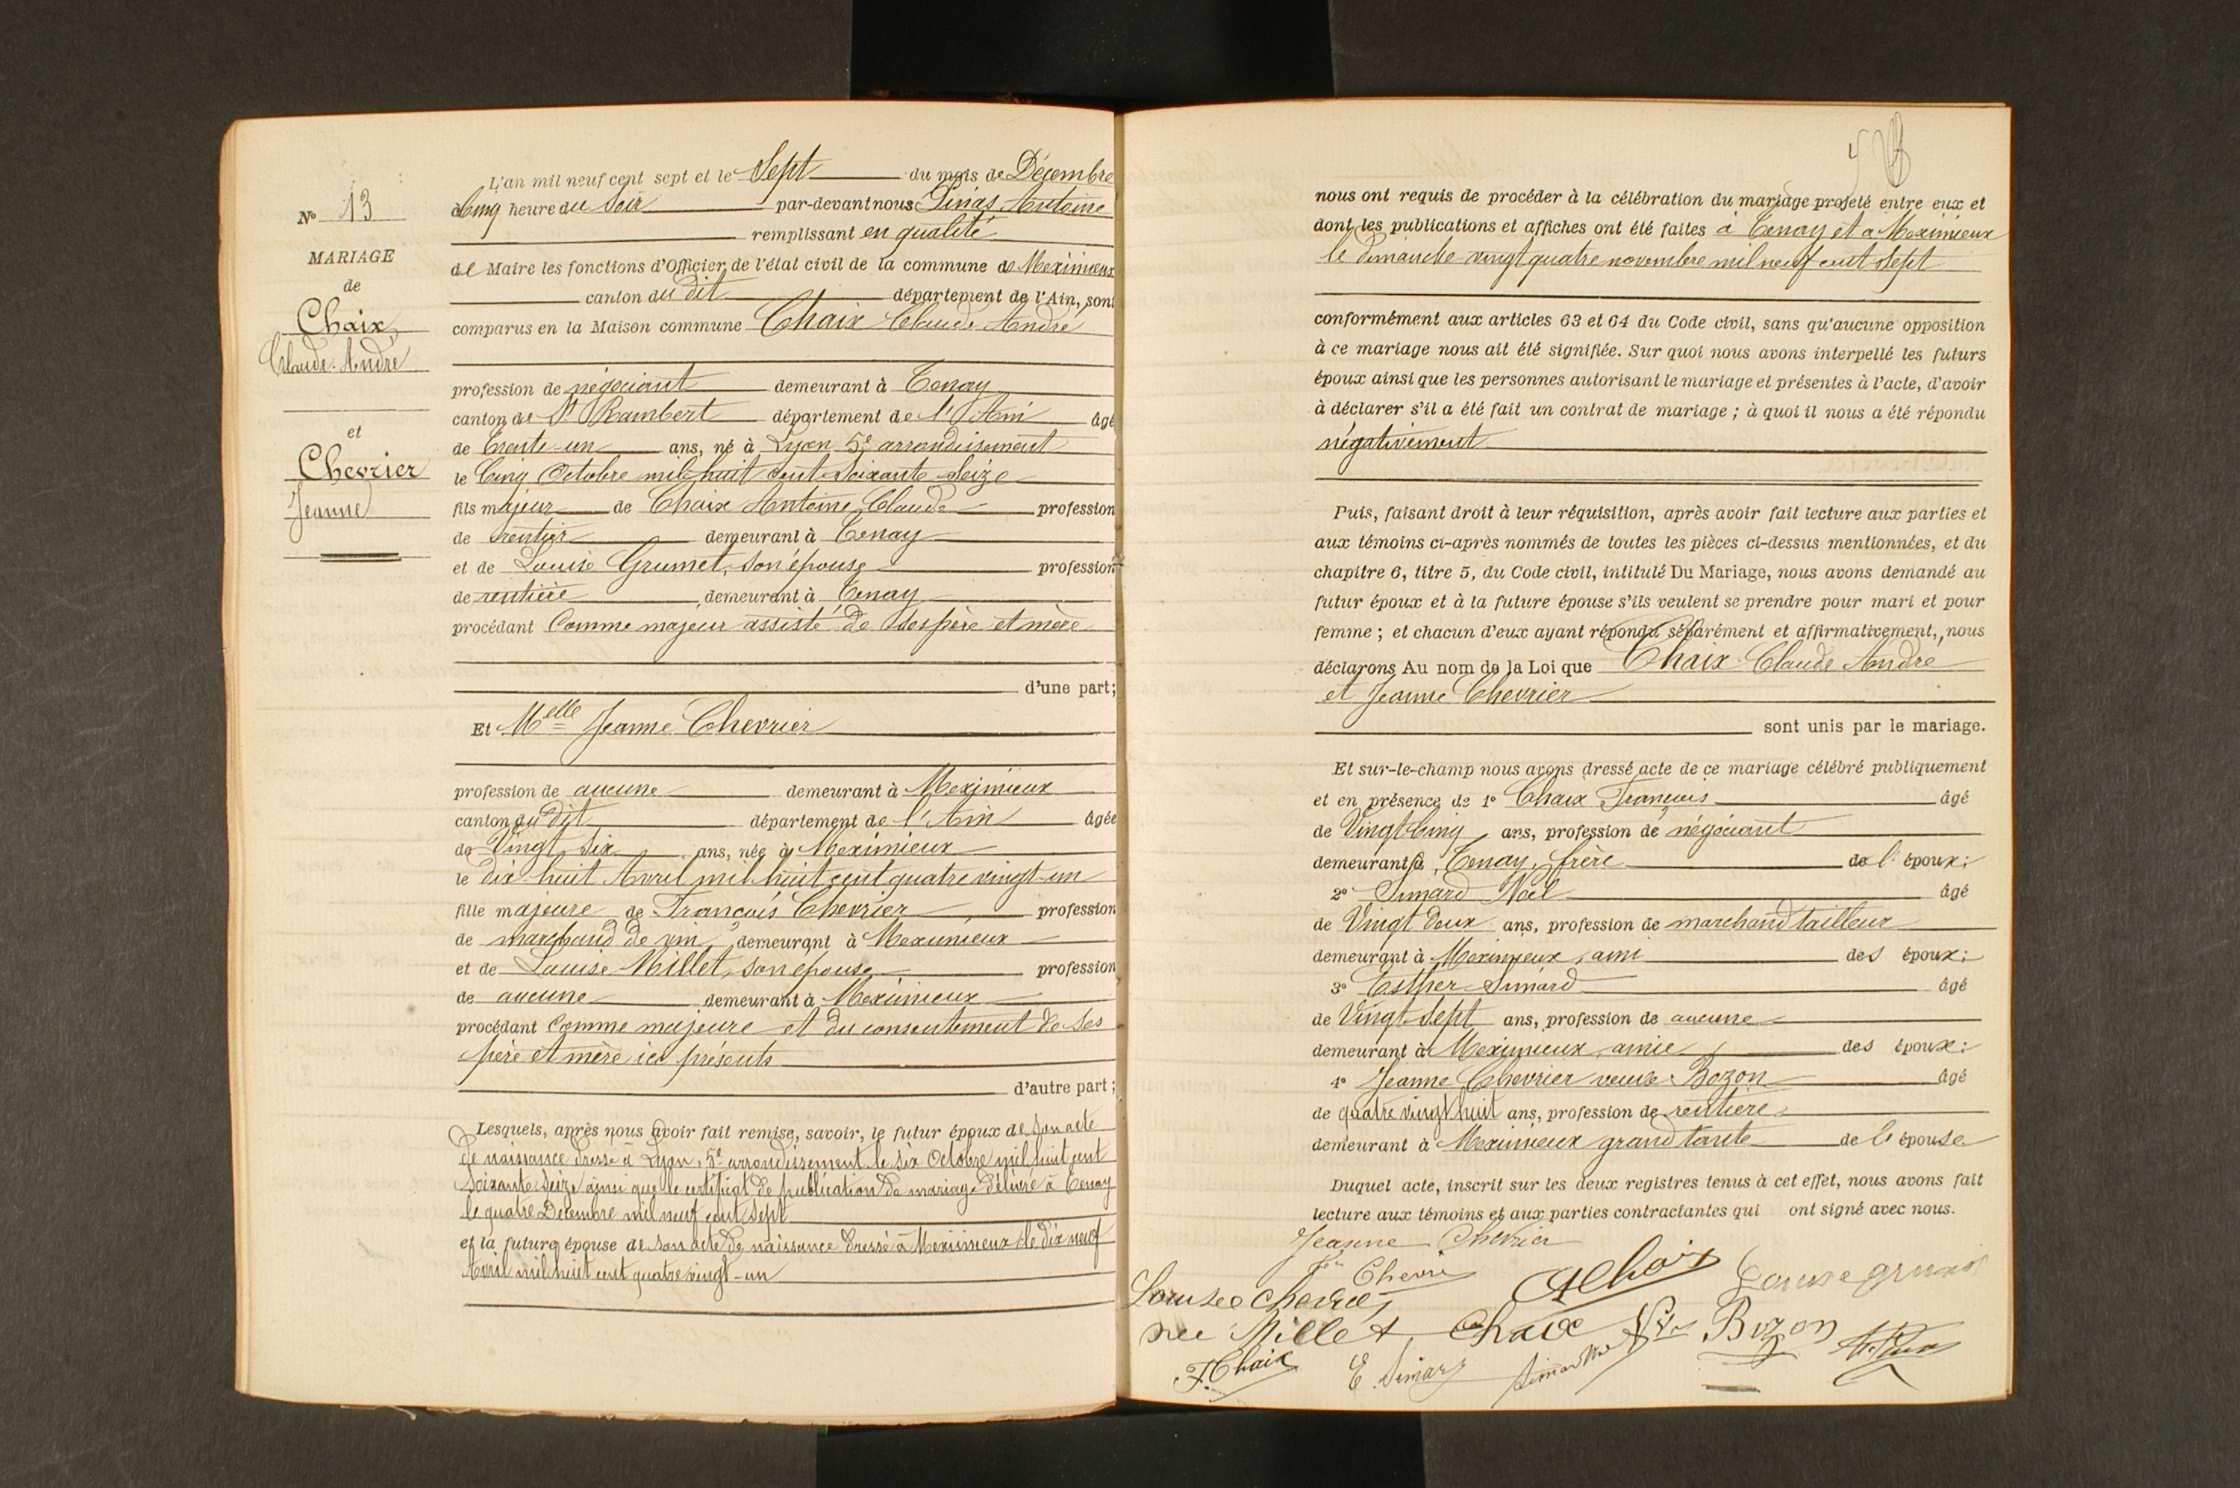 N° 13
MARIAGE
de
Chaix
Claude André
et
Chevrier
Jeanne
L'an mil neuf cent sept et le Sept du mois de Décembre
à Cinq heure du Soir par-devant nous Antoine
remplissant en qualité
de Maire les fonctions d'Officier de l'état civil de la commune de Meximieux
canton du dit département de l'Ain, sont
comparus en la Maison commune Chaix Claude André
profession de négociant demeurant à Tenay
canton de St Rambert département de l'Ain âgé
de trente-un ans, né à Lyon 5e arrondissement
le Cinq Octobre mil huit cent Soixante Seize
fils majeur de Chaix Antoine Claude profession
de rentier demeurant à Tenay
et de Louise Grumet, son épouse profession
de rentière demeurant à Tenay
procédant Comme majeur assisté de ses père et mère
d'une part;
Et Melle Jeanne Chevrier
profession de aucune demeurant à Meximieux
canton du dit département de l'Ain âgée
de Vingt Six ans, née à Meximieux
le dix-huit Avril mil huit cent quatre vingt-un
fille majeure de François Chevrier profession
de marchand de vin, demeurant à Meximieux
et de Louise Millet, son épouse profession
de aucune demeurant à Meximieux
procédant Comme majeure et du consentement de ses
père et mère ici présents
d'autre part;
Lesquels, après nous avoir fait remise, savoir, le futur époux de son acte
de naissance dressé à Lyon, 5e arrondissement le six Octobre mil huit cent
Soixante Seize ainsi que le certificat de publication de mariage délivré à Tenay
le quatre Décembre mil neuf cent sept
et la future épouse de son acte de naissance dressé à Meximieux le dix neuf
Avril mil huit cent quatre vingt-un
nous ont requis de procéder à la célébration du mariage projeté entre eux et
dont les publications et affiches ont été faites à Tenay et à Meximieux
le Dimanche vingt quatre novembre mil neuf cent sept
conformément aux articles 63 et 64 du Code civil, sans qu'aucune opposition
à ce mariage nous ait été signifiée. Sur quoi nous avons interpellé les futurs
époux ainsi que les personnes autorisant le mariage et présentes à l'acte, d'avoir
à déclarer s'il a été fait un contrat de mariage; à quoi il nous a été répondu
négativement
Puis, faisant droit à leur réquisition, après avoir fait lecture aux parties et
aux témoins ci-après nommés de toutes les pièces ci-dessus mentionnées, et du
chapitre 6, titre 5, du Code civil, intitulé Du Mariage, nous avons demandé au
futur époux et à la future épouse s'ils veulent se prendre pour mari et pour
femme; et chacun d'eux ayant répondu séparément et affirmativement, nous
déclarons Au nom de la Loi que Chaix Claude André
et Jeanne Chevrier
sont unis par le mariage.
Et sur-le-champ nous avons dressé acte de ce mariage célébré publiquement
et en présence de 1° Chaix François âgé
de Vingt Cinq ans, profession de négociant
demeurant à Tenay, frère de l'époux;
2° Simard Noël âgé
de Vingt Deux ans, profession de marchand tailleur
demeurant à Meximieux, ami des époux;
3° Esther Simard âgé
de Vingt Sept ans, profession de aucune
demeurant à Meximieux, amie des époux;
4° Jeanne Chevrier veuve Bozon âgé
de quatre vingt huit ans, profession de rentière
demeurant à Meximieux grand tante de l'épouse
Duquel acte, inscrit sur les deux registres tenus à cet effet, nous avons fait
lecture aux témoins et aux parties contractantes qui ont signé avec nous.
Jeanne Chevrier
Louise
née Millet Chaix Bozon
F. Chaix E. Simard